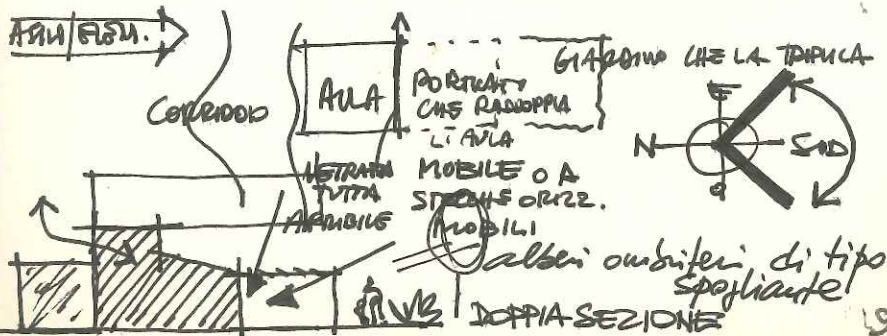 AULA
CORRIDOIO
PORTICATO
CHE RADDOPPIA
L'AULA
GIARDINO CHE LA TRIPLICA
VETRATA
TUTTA
APRIBILE
MOBILE O A
STECCHE ORIZZ.
MOBILI
N
E
SUD
O
alberi ombriferi di tipo
spogliante
DOPPIA SEZIONE